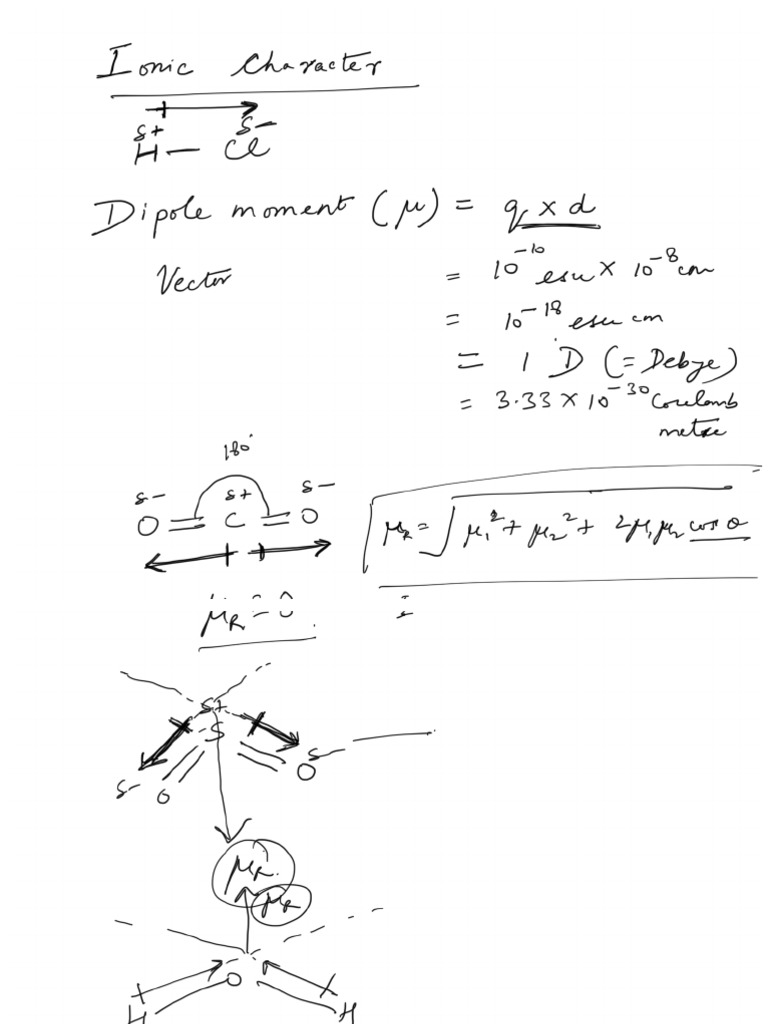 Ionic Character
δ+ δ-
H — Cl
Dipole moment (μ) = q × d
Vector
= 10⁻¹⁰ esu × 10⁻⁸ cm
= 10⁻¹⁸ esu cm
= 1 D (= Debye)
= 3.33 × 10⁻³⁰ Coulomb
metre
180°
δ- δ+ δ-
O = C = O
μR = √μ₁² + μ₂² + 2μ₁μ₂ cos θ
μR = 0
δ+
S
δ- O
δ- O
μR
μR
O
H H